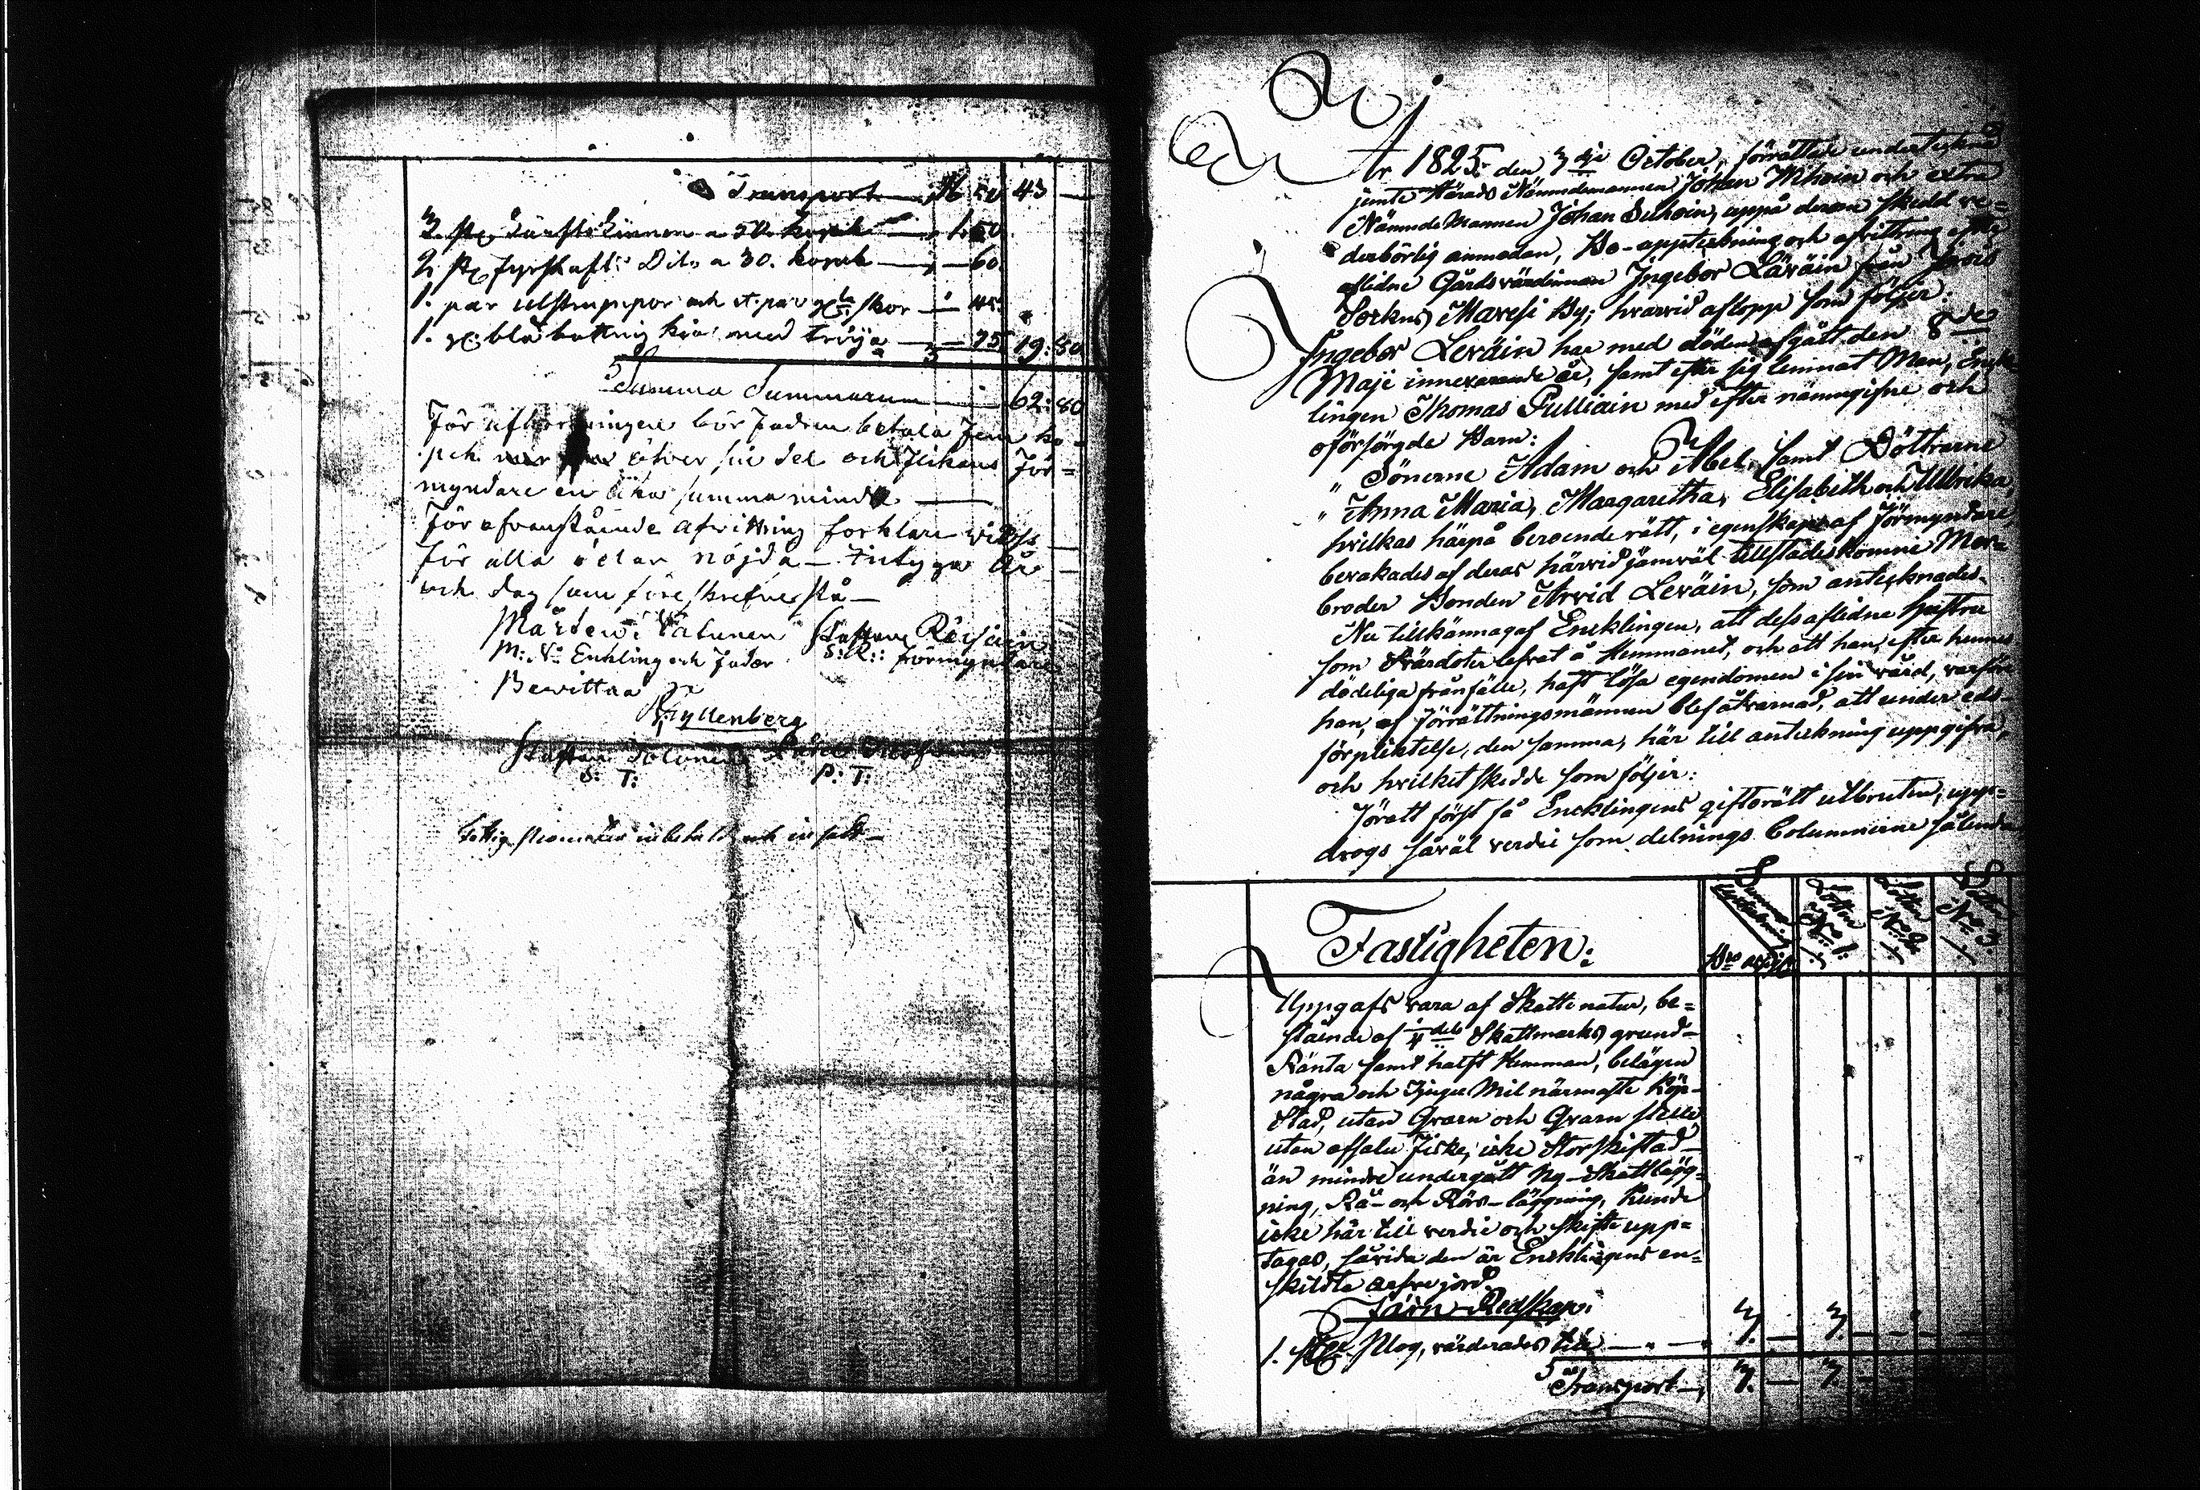 Transport 16 50 43 —
2 st. Lärftslinnen a 50. kopek — 1. 50
2 st. fyrskafts Dito a 30. kopek — 60.
1. par ulstrumpor och et par skor — 45.
1. blå kjol med tröya — 75 19: 80
Summa Summarum — 62: 80
För bör Fadren betala fem ko-
pek öfver sin del och flikans För-
myndare en lika summa mindre —
För ofvanstående afwittring forklara vi oss
för alla delar nöjda — Intygar År
och dag som före skrefvet stå —
Mårten Staffan Räisäin
M: V: Enkling och fader S: R: Förmyndare
Bewittna
Gyllenberg
Staffan
S: T: P: T:
Fattig procenten inbetalt och
År 1825. den 3dje October, förrättade undertecknad
jemte Härads Nämndemannen Johan Ihoin och extra
Nämnde Mannen Johan Suhoin, uppå derom skedd ve-
derbörlig anmodan, Bo-uppteckning och afvittring efter
aflidne Gårdsvärdinnan Ingebor Leväin från
Sorkus Maresi By; hvarvid aflopp som följer:
Ingebor Leväin har med döden afgått den 8de
Maji innevarande år, samt efter sig lemnat Man, Enck-
lingen Thomas Pulliain med efter nämngifne och
oförsörgde Barn:
" Sönerne Adam och Abel, samt Döttrarne
" Anna Maria, Margaretha, Elisabeth och Ulbrika,
hvilkas härpå beroende rätt, i egenskap af Förmyndare,
bevakades af deras härvid jämväl tillstädes komne Mor-
broder Bonden Arvid Leväin, som antecknades.
Nu tillkännagaf Encklingen, att dess aflidne hustru
som Svärdoter lefvat å Hemmanet, och att han, efter hennes
dödeliga frånfälle, haft lösa egendomen i sin vård, varför
han, af Förrättningsmännen blef åtvarnad, att under eds-
förpliktelse, den samma, här till anteckning uppgifva,
och hvilket skedde som följer:
Föratt först få Encklingens giftorätt utbruten, upp-
drogs såväl verdie som delnings Columnerne sålunda
Fastigheten: Summa Lotten No 1. Lotten No 2. Lotten No 3.
Uppgafs vara af Skatte natur, be-
stående af 1/4 dels Skattmarks grund-
Ränta samt halft Hemman, belägen
några och Tjugu Mil närmaste Köp-
Stad, utan Qvarn och Qvarn ställe
utan afsalu Fiske, icke Storskiftad
än mindre undergått Ny-Skattlägg-
ning, Rå- och Rörs-läggning, kunde
icke här till verdie och skifte upp-
tagas, såvida den är Encklingens en-
skildte arfve jord.
Järn-Redskap:
1. st. Plog, värderades till — 7. — 7. —
Transport — 7. — 7. —